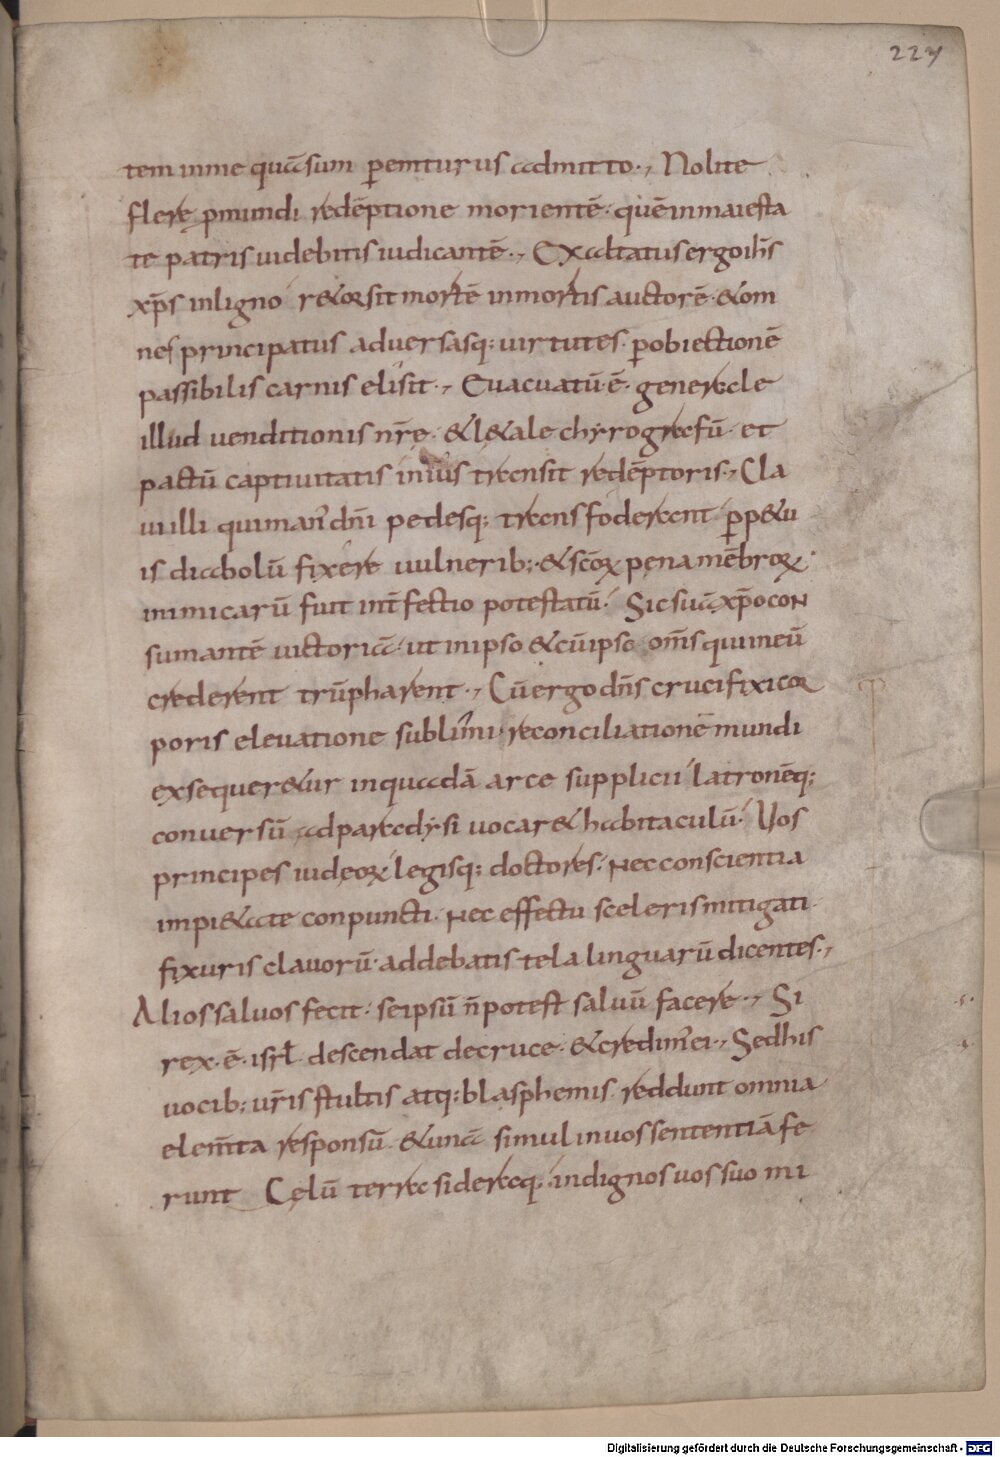 227
tem in me quā sum peremturus admitto., Nolite
flere pmundi redēptione morientē. quē in maiesta
te patris uidebitis iudicantē., Exaltatus ergo ih̄s
xp̄s in ligno r&orsit mortē in mortis auctorē. &om
nes principatus aduersasq; uirtutes. ꝑ obiectionē
passibilis carnis elisit., Euacuatū ē. generale
illud uenditionis nr̄e. &l&ale chyrografū. et
pactū captiuitatis in ius transiit redēptoris., Cla
ui illi qui man' dn̄i pedesq; transfoderant ꝑp&u
is diabolū fixere uulnerib;. &sc̄oꝝ pena mēbroꝝ.
inimicarū fuit int̄fectio potestatū. Sic suā xp̄o con
sumante uictoriā. ut in ipso &cū ipso om̄s qui in eū
crederent triūpharent., Cū ergo dn̄s crucifixi cor
poris eleuatione sublimi. reconciliationē mundi
exsequer&ur in quadā arce supplicii latronēq;
conuersū ad paradysi uocar& habitaculū. Uos
principes iudęoꝝ legisq; doctores. nec conscientia
impi&ate conpuncti. nec effectu sceleris mitigati.
fixuris clauorū. addebatis tela linguarū dicentes.,
Alios saluos fecit. seipsū n̄ potest saluū facere., Si
rex. ē. isrl̄ descendat de cruce. &credim' ei., Sed his
uocib; ur̄is stultis atq; blasphemis. reddunt omnia
elem̄ta responsū. &unā simul in uos sententiā fe
runt Cęlū terra sideraq. indignos uos suo mi
Digitalisierung gefördert durch die Deutsche Forschungsgemeinschaft - DFG